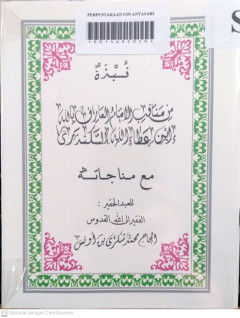 PERPUSTAKAAN UIN ANTASARI
S
نُبْذَةٌ
من مناقب الإمام العارف بالله
ابن عطاء الله السكندري
مع مناجاته
للعبد الحقير :
الفقير إلى الله القدوس
الحاج محمد شكري بن أونس